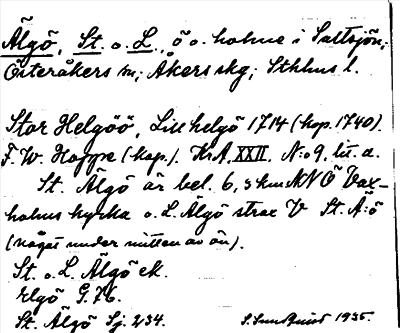 Älgö, St. o. L., ö o. holme i Saltsjön;
Österåkers sn; Åkers skg; Sthlms l.
Stor Helgöö, Lill helgö 1714 (kop. 1740).
F. W. Hoppe (kop.). Kr.A. XXII, N:o 9, lit. a.
St. Älgö är bel. 6,3 km NNÖ Vax-
holms kyrka o. L. Älgö strax V St. Ä:ö
(något under mitten av ön).
St. o. L. Älgö ek.
Elgö G. 76.
St. Älgö Sj. 234.
1935.